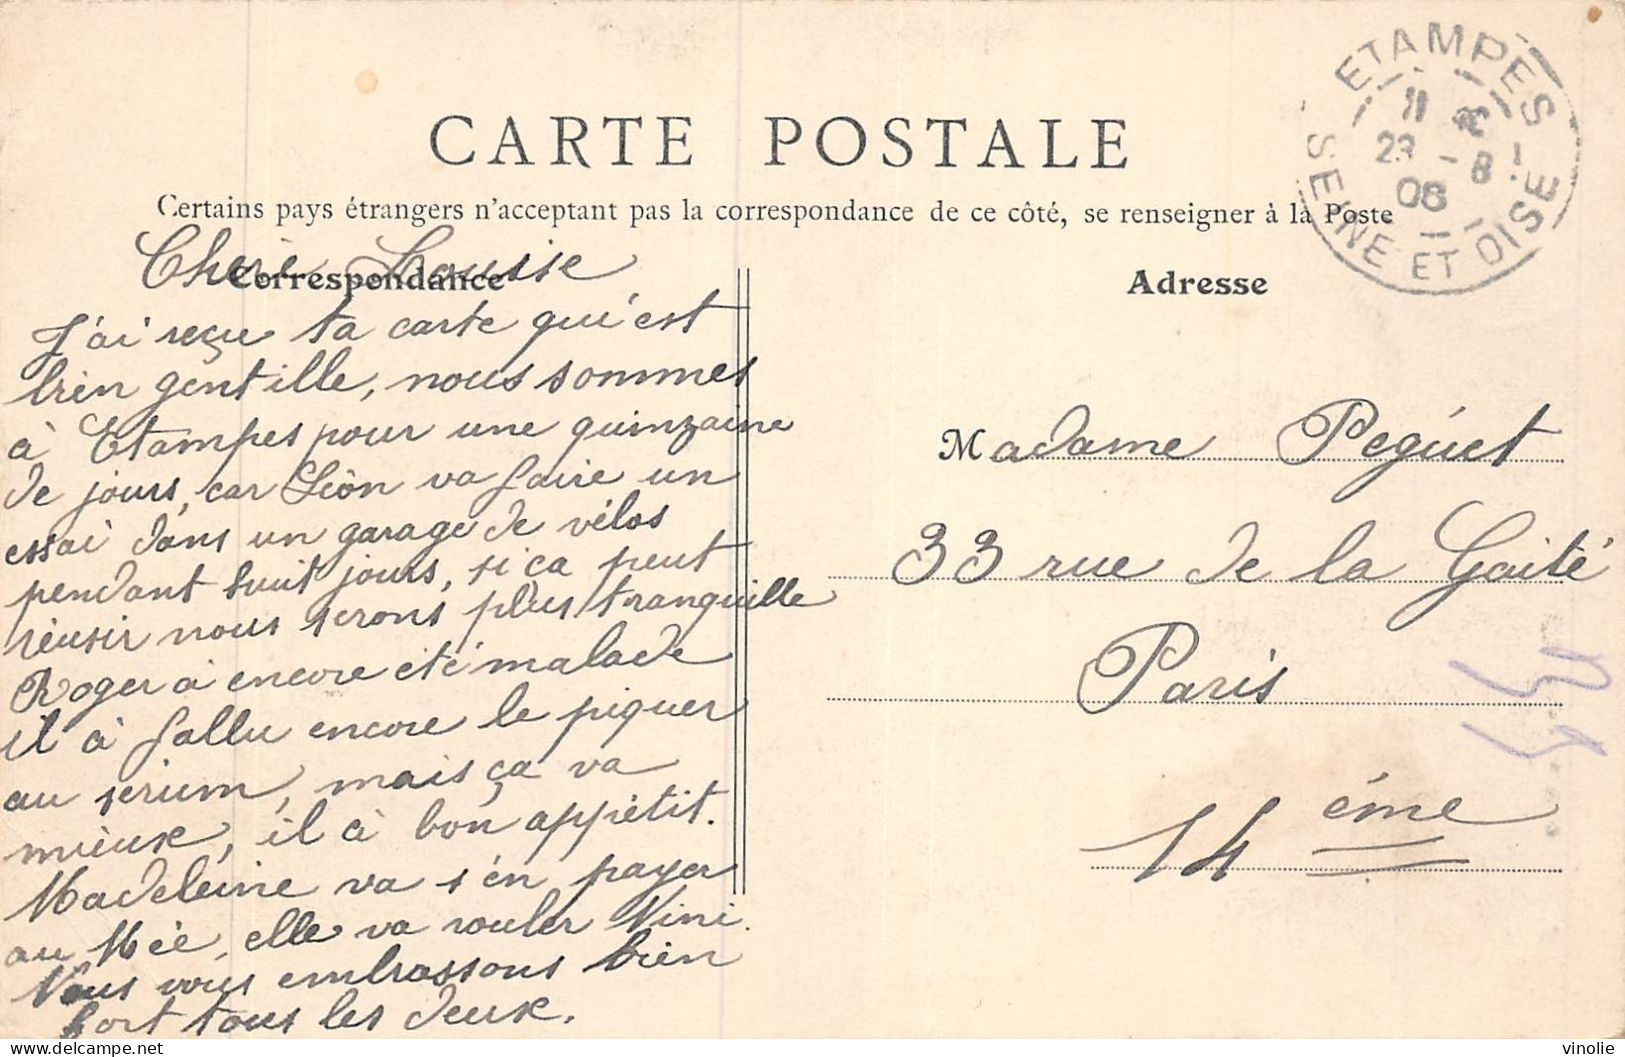 CARTE POSTALE
Certains pays étrangers n'acceptant pas la correspondance de ce côté, se renseigner à la Poste
ETAMPES
11
23 - 8
08
SEINE ET OISE
Correspondance
Chère Louise
J'ai reçu ta carte qui est
bien gentille, nous sommes
à Etampes pour une quinzaine
de jours, car Léon va faire un
essai dans un garage de vélos
pendant huit jours, si ca peut
réusir nous serons plus tranquille
Roger à encore été malade
il à fallu encore le piquer
au serum, mais ça va
mieux, il à bon appétit.
Madeleine va s'en payer
au Mée, elle va rouler Nini.
Nous vous embrassons bien
fort tous les deux.
Adresse
Madame Peguet
33 rue de la Gaité
Paris
14 ème
vinolie